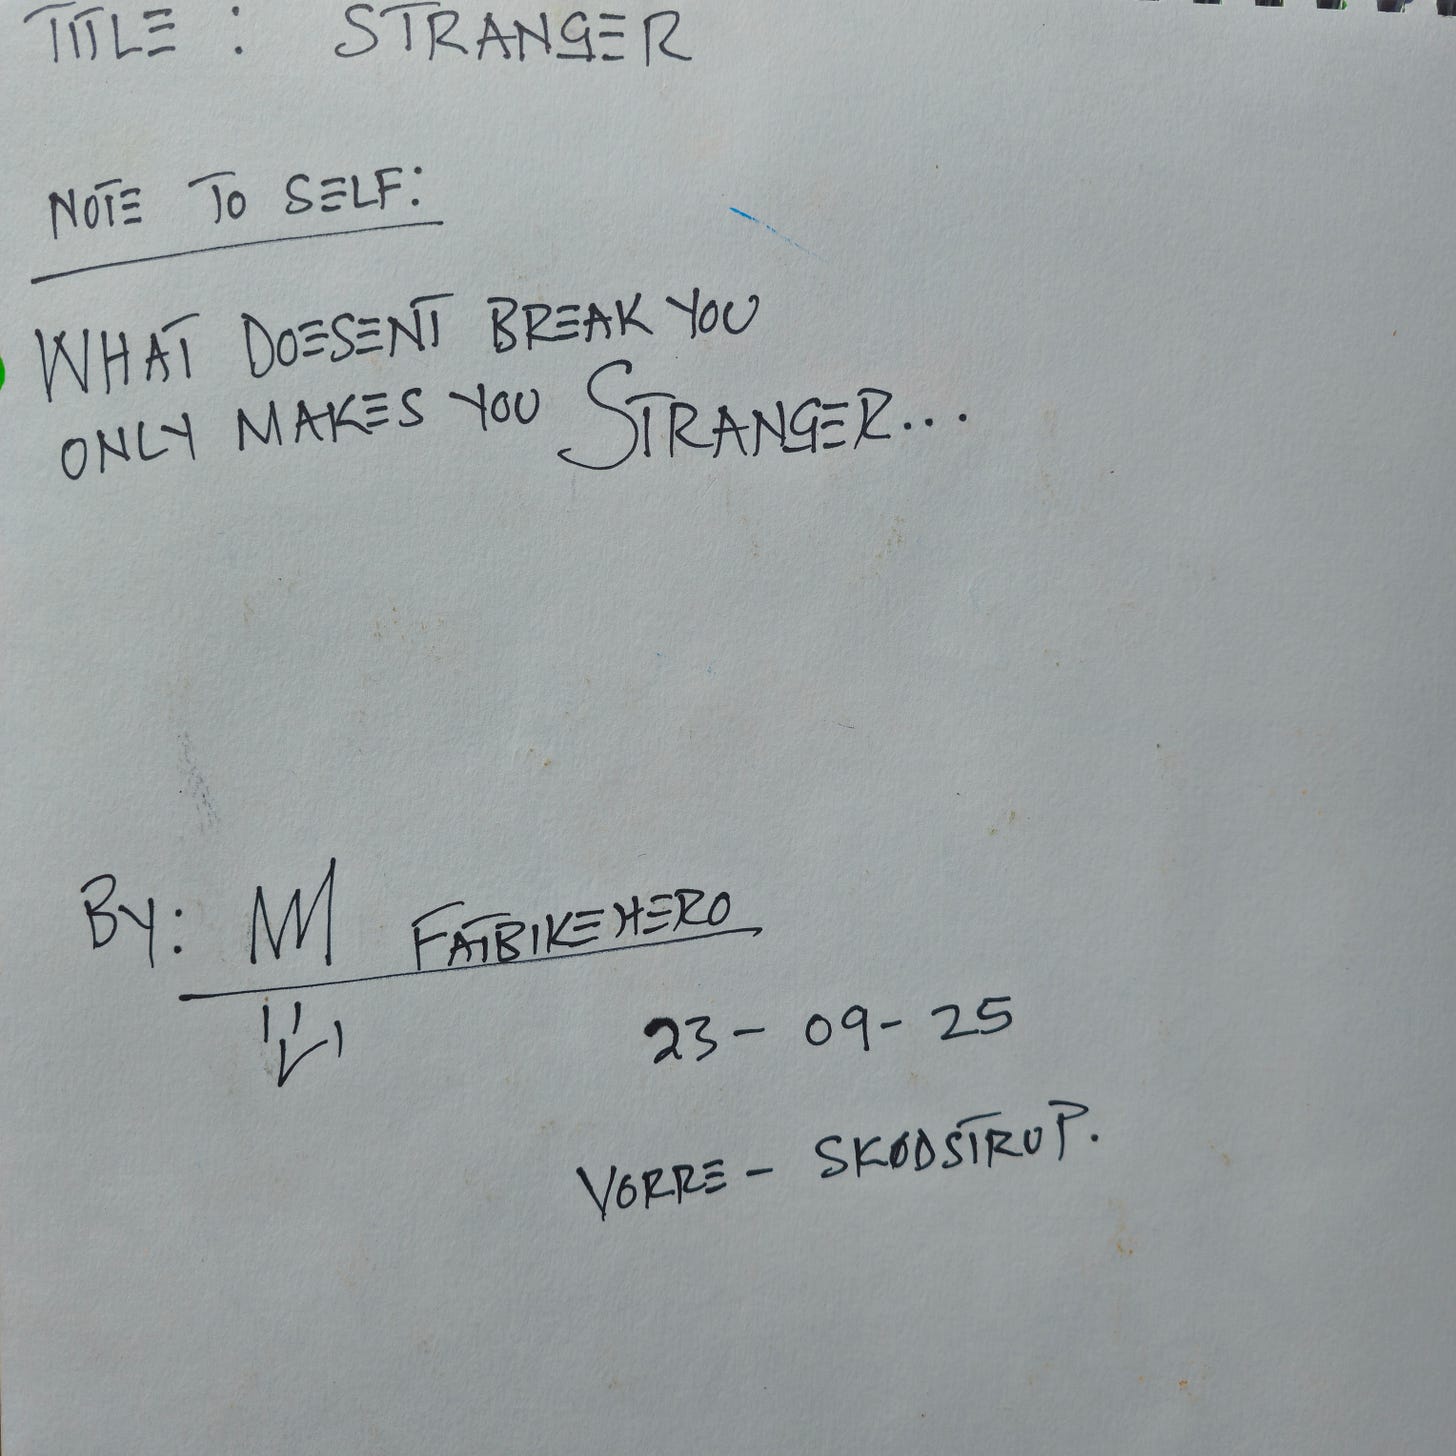 TITLE : STRANGER
NOTE TO SELF:
WHAT DOESENT BREAK YOU
ONLY MAKES YOU STRANGER...
By: FATBIKEHERO
23- 09- 25
VORRE - SKØDSTRUP.